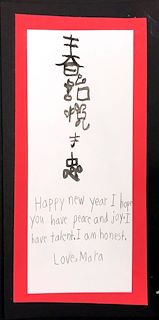 春
悅
才
忠
Happy new year I hope
you have peace and joy. I
have talent. I am honest.
Love, Mara